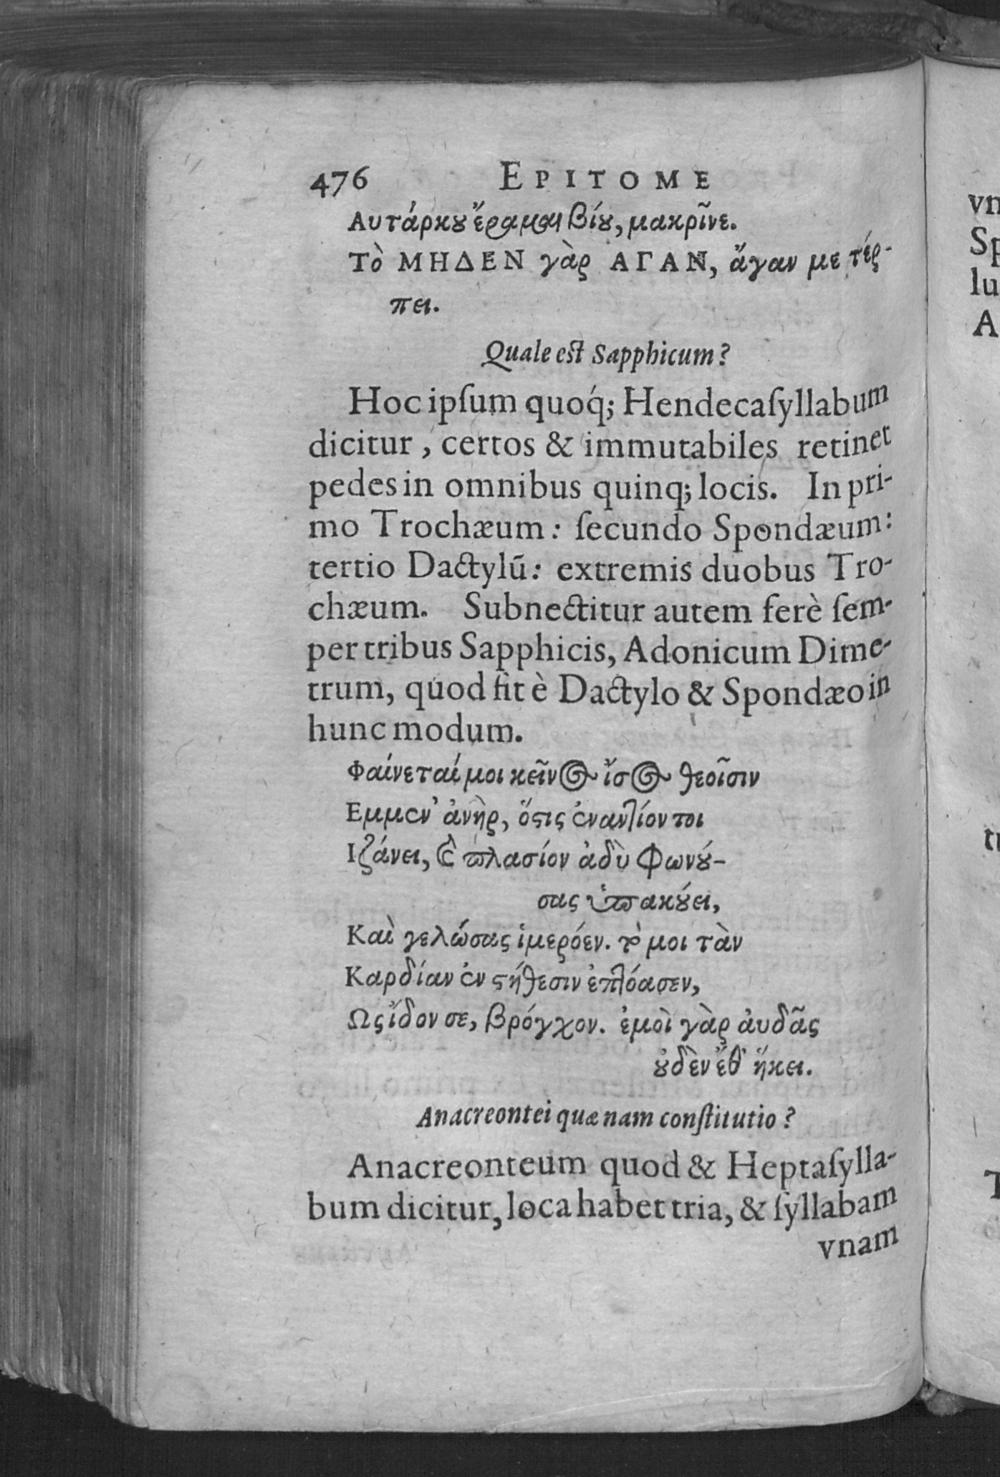 476 EPITOME
Αυτάρκȣ ἔραμαι βίȣ, μακρῖνε.
Τὸ ΜΗΔΕΝ γὰρ ΑΓΑΝ, ἄγαν με τέρ-
πει.
Quale est Sapphicum?
Hoc ipſum quoq́; Hendecaſyllabum
dicitur, certos & immutabiles retinet
pedes in omnibus quinq; locis. In pri-
mo Trochæum: ſecundo Spondæum:
tertio Dactylũ: extremis duobus Tro-
chæum. Subnectitur autem ferè ſem-
per tribus Sapphicis, Adonicum Dime-
trum, quod fit è Dactylo & Spondæo in
hunc modum.
Φαίνεταί μοι κεῖνος ἴσος θεοῖσιν
Εμμεν' ἀνὴρ, ὅϛις ἐναντίον τοι
Ιζάνει, ϗ πλασίον ἁδὺ Φωνȣ́-
σας ὑπακȣ́ει,
Καὶ γελώσας ἱμερόεν. τό μοι τὰν
Καρδίαν ἐν ϛήθεσιν ἐπτόασεν,
Ως ἴδον σε, βρόγχον. ἐμοὶ γὰρ ἀυδᾶς
ȣ̓δὲν ἔθ' ἥκει.
Anacreontei quænam conſtitutio?
Anacreonteum quod & Heptaſylla-
bum dicitur, loca habet tria, & ſyllabam
vnam
vn
Sp
lu
A